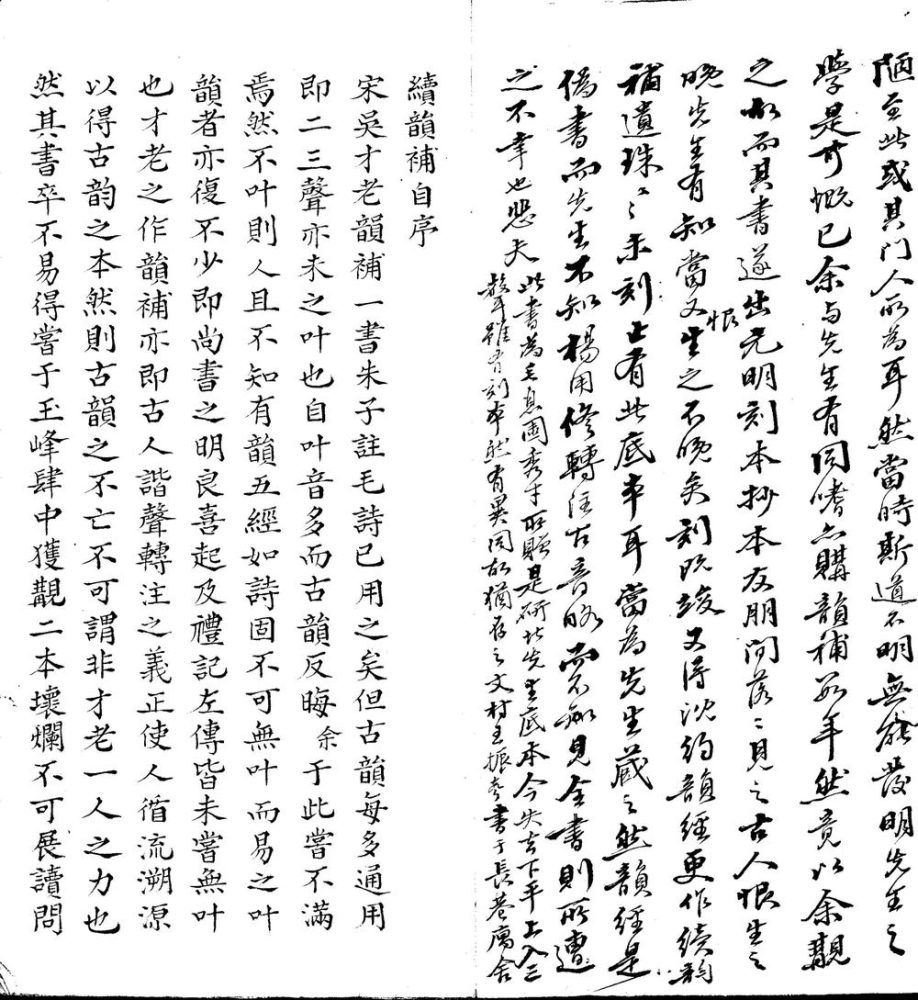 陋至此或其门人所为耳然當時斯道不明無能發明先生之
學是可慨已余与先生有同嗜亦購韻補数年然竟以余覯
之如而其書遂出元明刻本抄本友朋間落〻見之古人恨生之
晚先生有知當又恨生之不晚矣刻既竣又得沈約韻經更作續韵
補遺珠〻之未刻止有此底本耳當為先生蔵之然韻經是
偽書而先生不知楊用修轉注古音略而不知見全書則所遭
之不幸也悲夫
此書為毛息圃秀才所贈是研北先生底本今失去下平上入三
聲雖有刻本然有異同故猶存之文村王振聲書于長巷寓舍
續韻補自序
宋吳才老韻補一書朱子註毛詩已用之矣但古韻每多通用
即二三聲亦未之叶也自叶音多而古韻反晦余于此嘗不滿
焉然不叶則人且不知有韻五經如詩固不可無叶而易之叶
韻者亦復不少即尚書之明良喜起及禮記左傳皆未嘗無叶
也才老之作韻補亦即古人諧聲轉注之義正使人循流溯源
以得古韵之本然則古韻之不亡不可謂非才老一人之力也
然其書卒不易得嘗于玉峰肆中獲觀二本壞爛不可展讀問